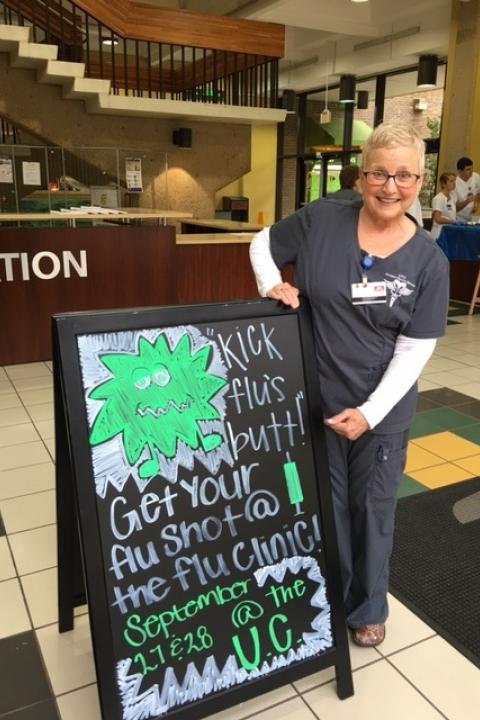 ATION
"KICK
flu's
butt!"
Get your
flu shot @
the flu clinic!
September
27 & 28 @ the
U.C.